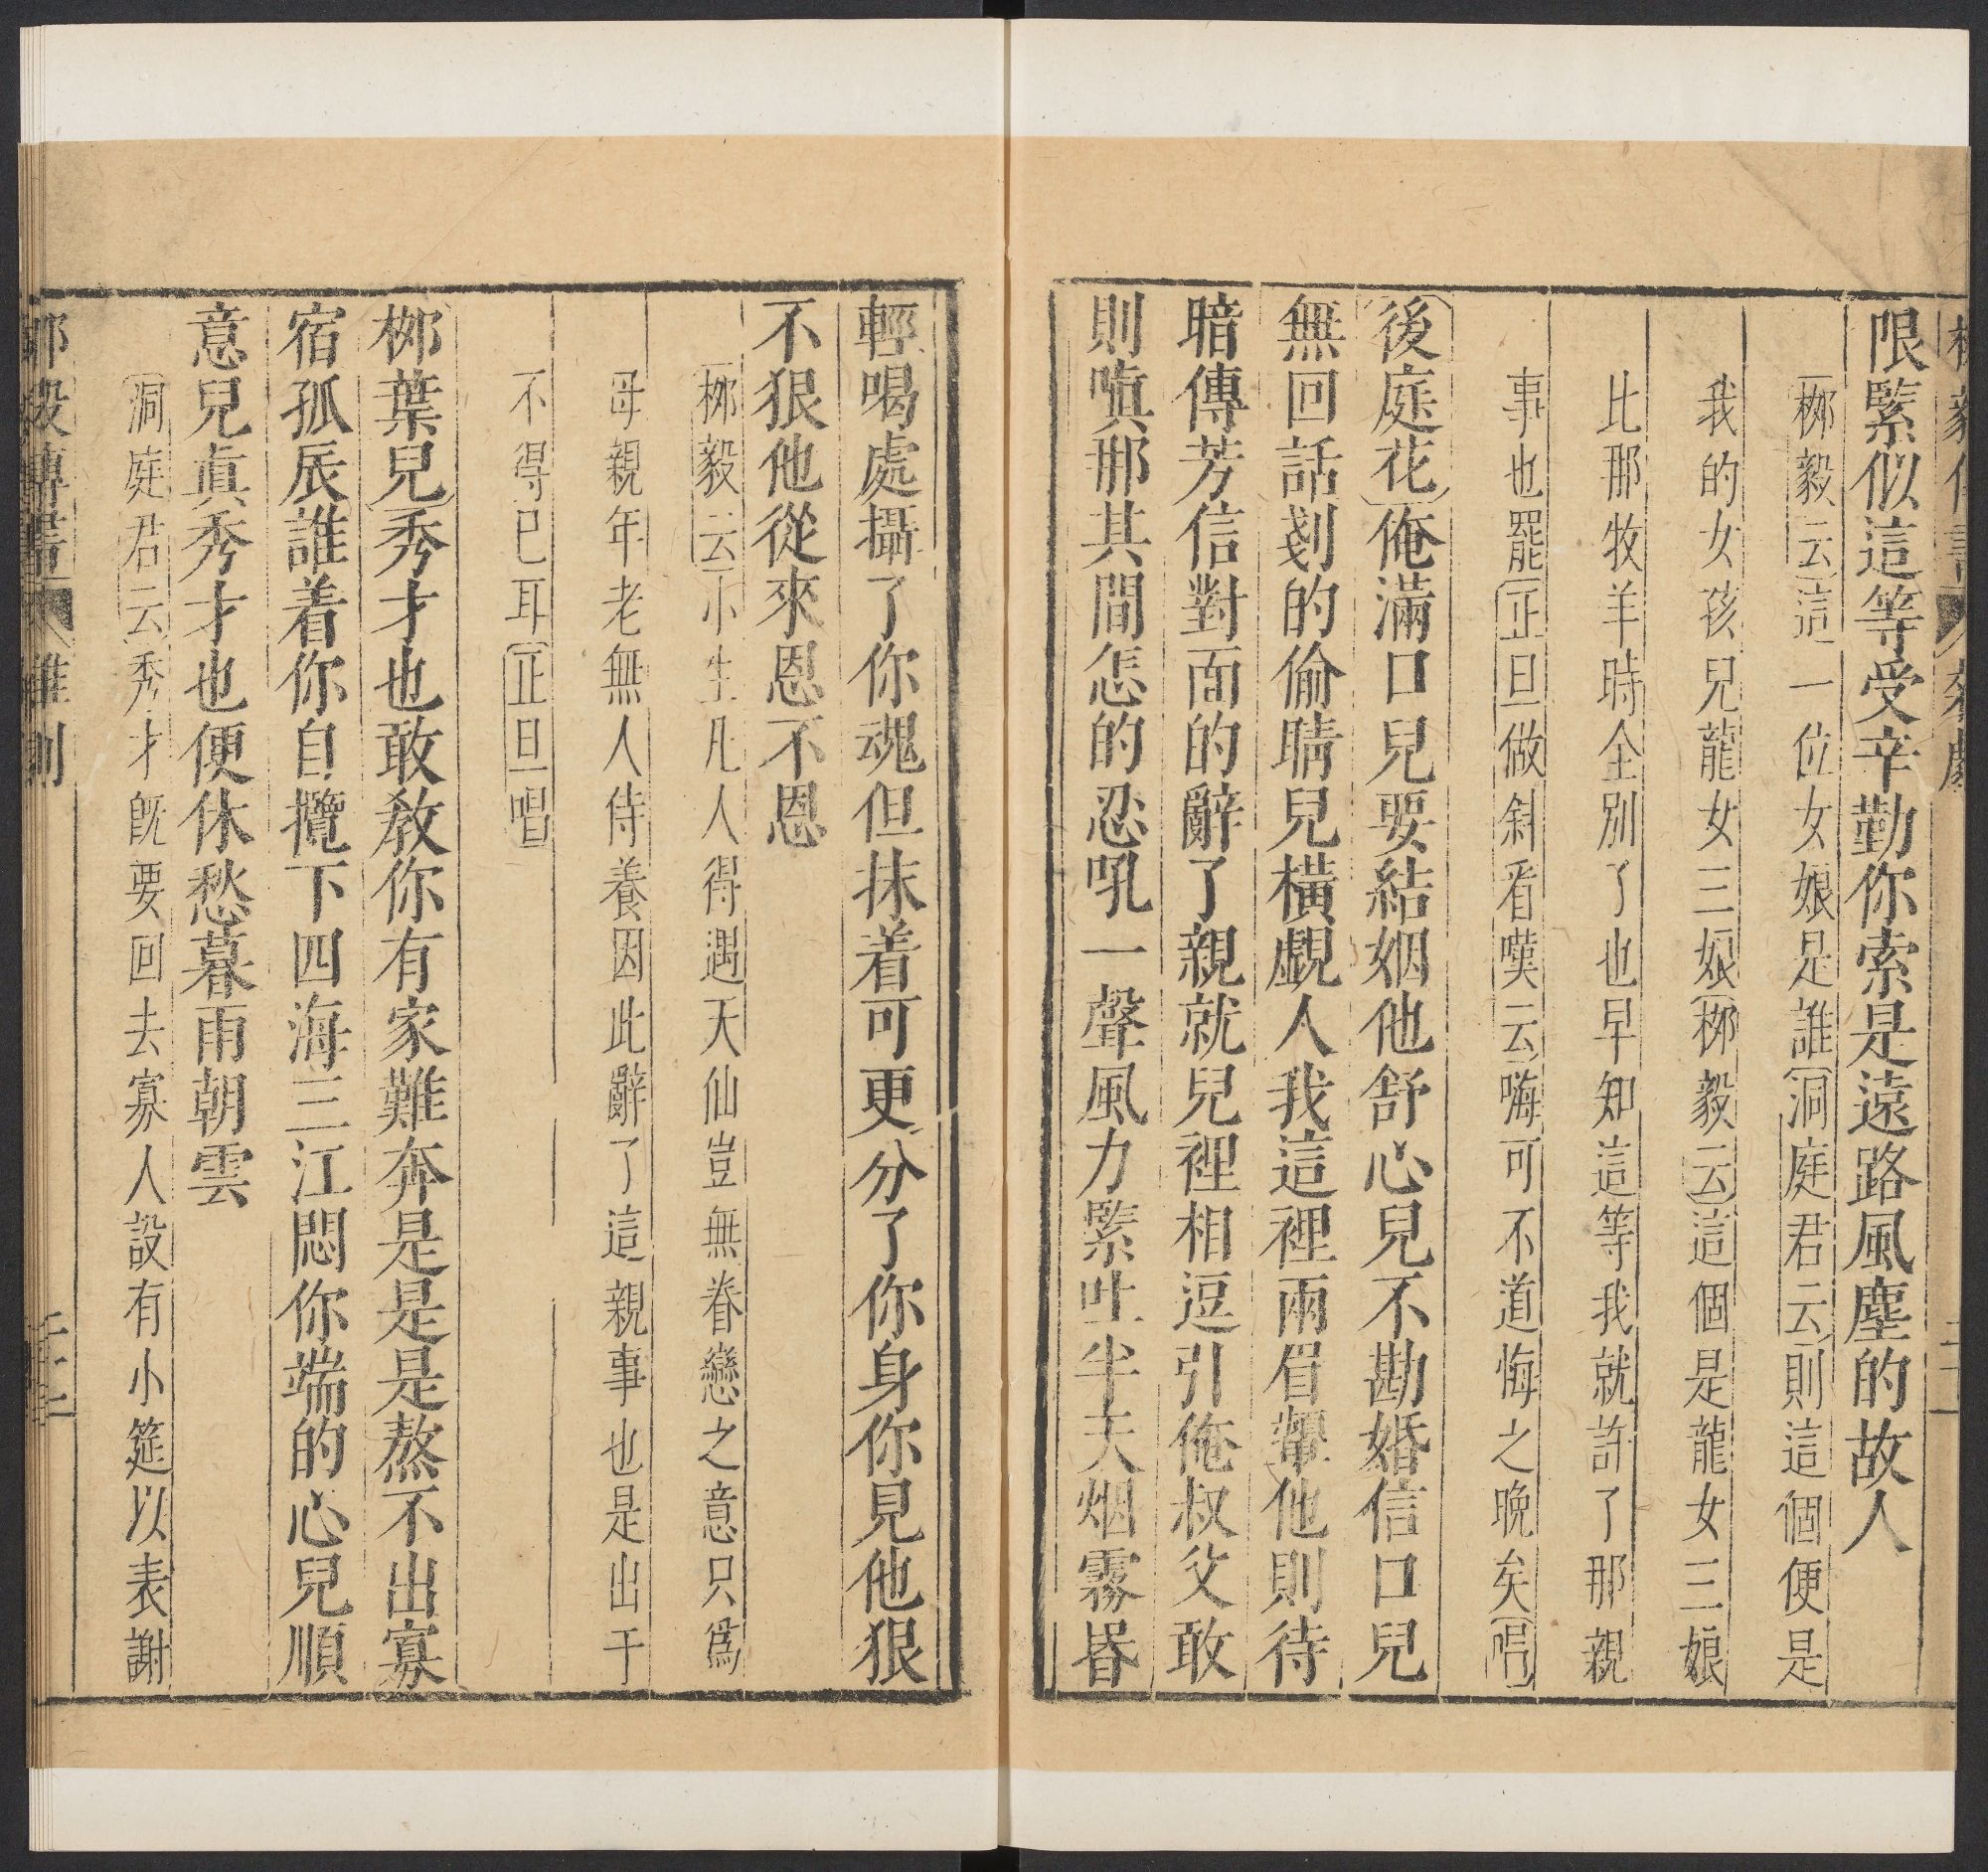 限緊似這等受辛勤你索是遠路風塵的故人
柳毅云這一位女娘是誰洞庭君云則這個便是
我的女孩兒龍女三娘柳毅云這個是龍女三娘
比那牧羊時全別了也早知這等我就許了那親
事也罷正旦做斜看嘆云嗨可不道悔之晚矣唱
後庭花俺滿口兒要結姻他舒心兒不勘婚信口兒
無回話剗的偷睛兒橫覷人我這裡兩眉顰他則待
暗傳芳信對面的辭了親就兒裡相逗引俺叔父敢
則嗔那其間怎的忍吼一聲風力緊吐半天烟霧昏
輕喝處攝了你魂但抹着可更分了你身你見他狠
不狠他從來恩不恩
柳毅云小生凡人得遇天仙豈無眷戀之意只爲
母親年老無人侍養因此辭了這親事也是出于
不得已耳正旦唱
柳葉兒秀才也敢教你有家難奔是是是熬不出寡
宿孤辰誰着你自攬下四海三江悶你端的心兒順
意兒真秀才也便休愁暮雨朝雲
洞庭君云秀才既要回去寡人設有小筵以表謝